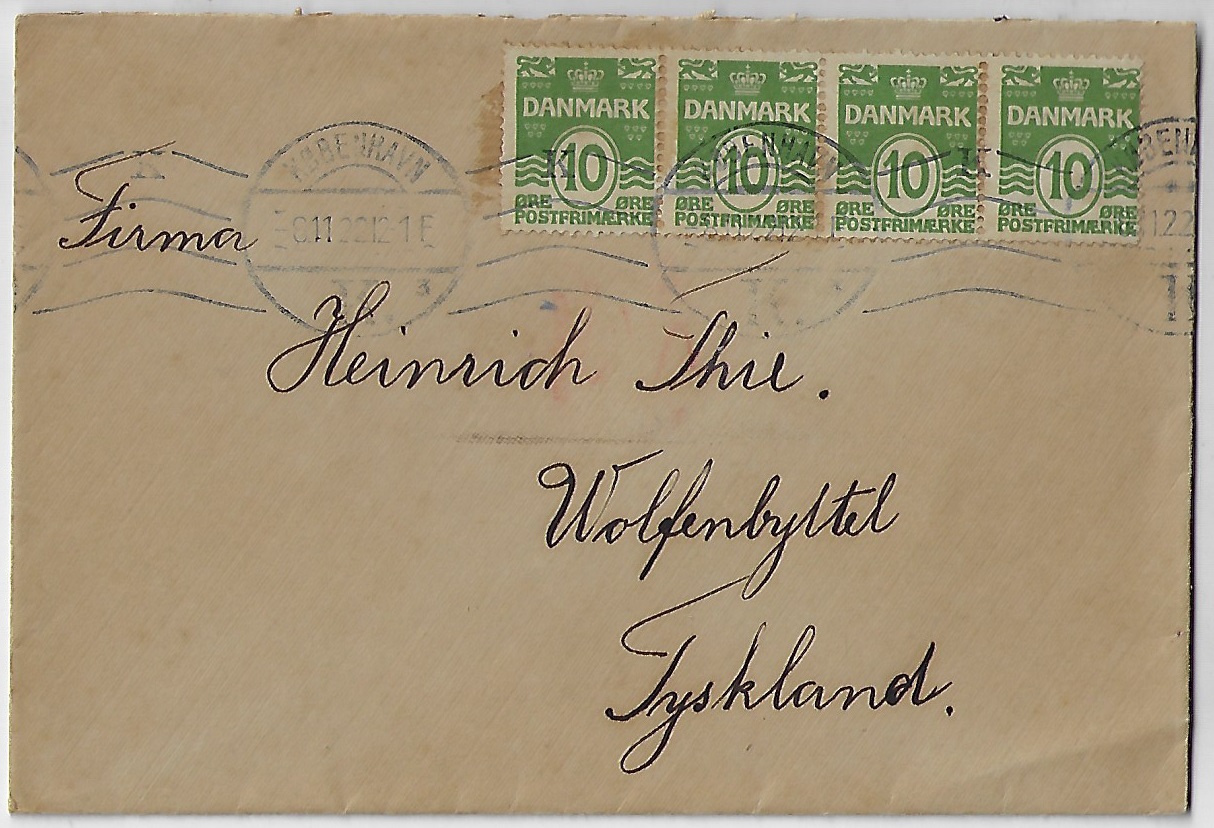 DANMARK DANMARK DANMARK DANMARK
10 10 10 10
ØRE ØRE ØRE ØRE ØRE ØRE ØRE ØRE
POSTFRIMÆRKE POSTFRIMÆRKE POSTFRIMÆRKE POSTFRIMÆRKE
KØBENHAVN
8.11.22.12-1E
K.
3
Firma
Heinrich Thie.
Wolfenbyttel
Tyskland.